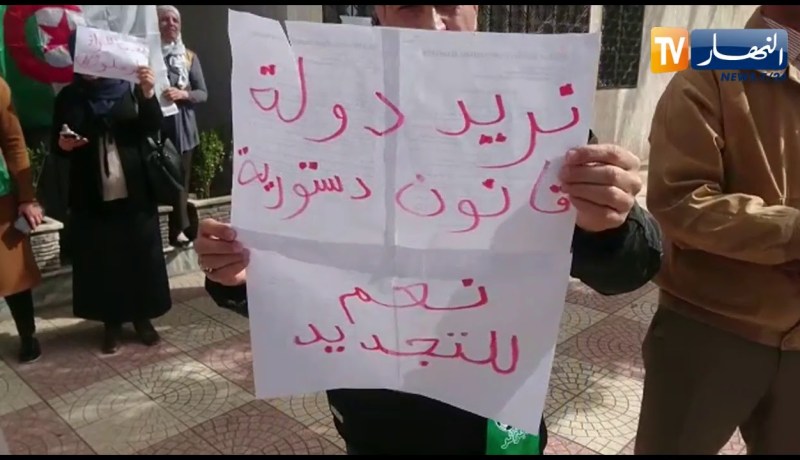 نريد دولة
قانون دستورية
نعم
للتجديد
النهار TV